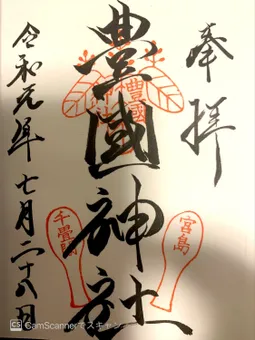 奉拝
豊國神社
令和元年七月二十八日
宮島
千畳閣
CS CamScannerでスキャン